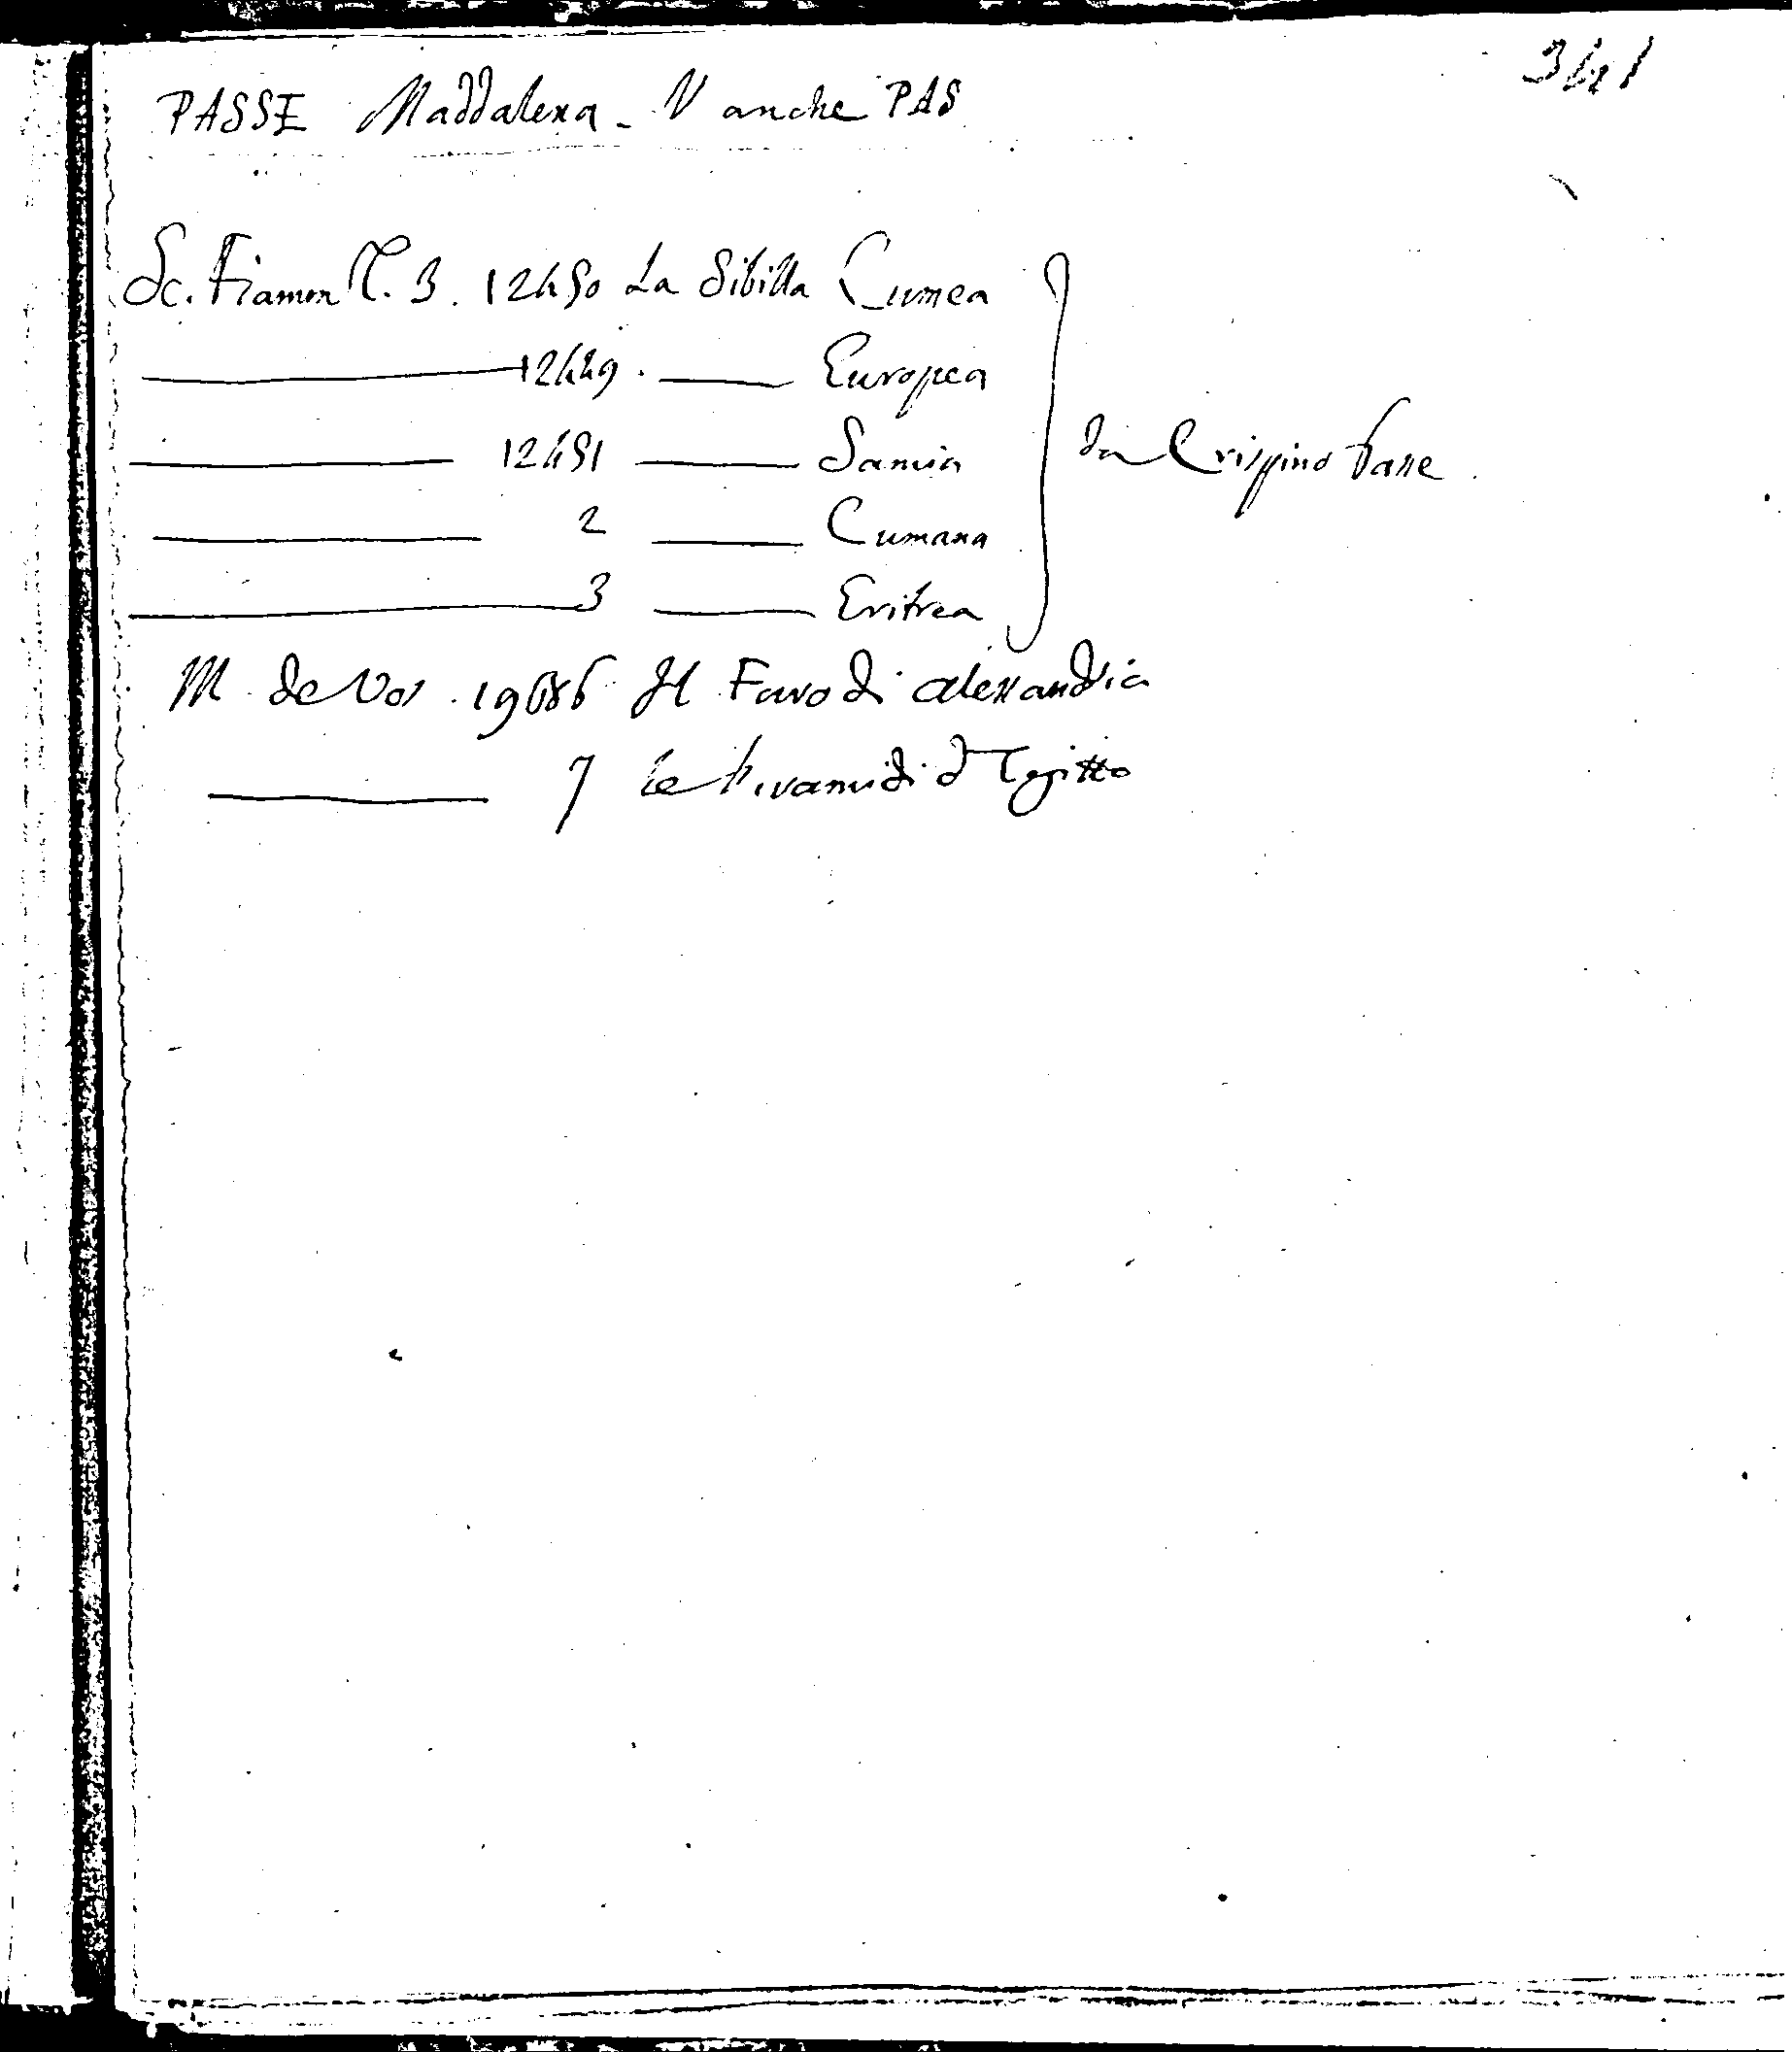 3421
PASSE Maddalena - V anche PAS
Sc. Fiamm T. 3. 12450 La Sibilla Cumea
12449. Europea
12451 Samia
da Crispino Passe
2 Cumana
3 Eritrea
M. de Vos. 19686 Il Faro di Alessandria
7 le Piramidi d'Egitto